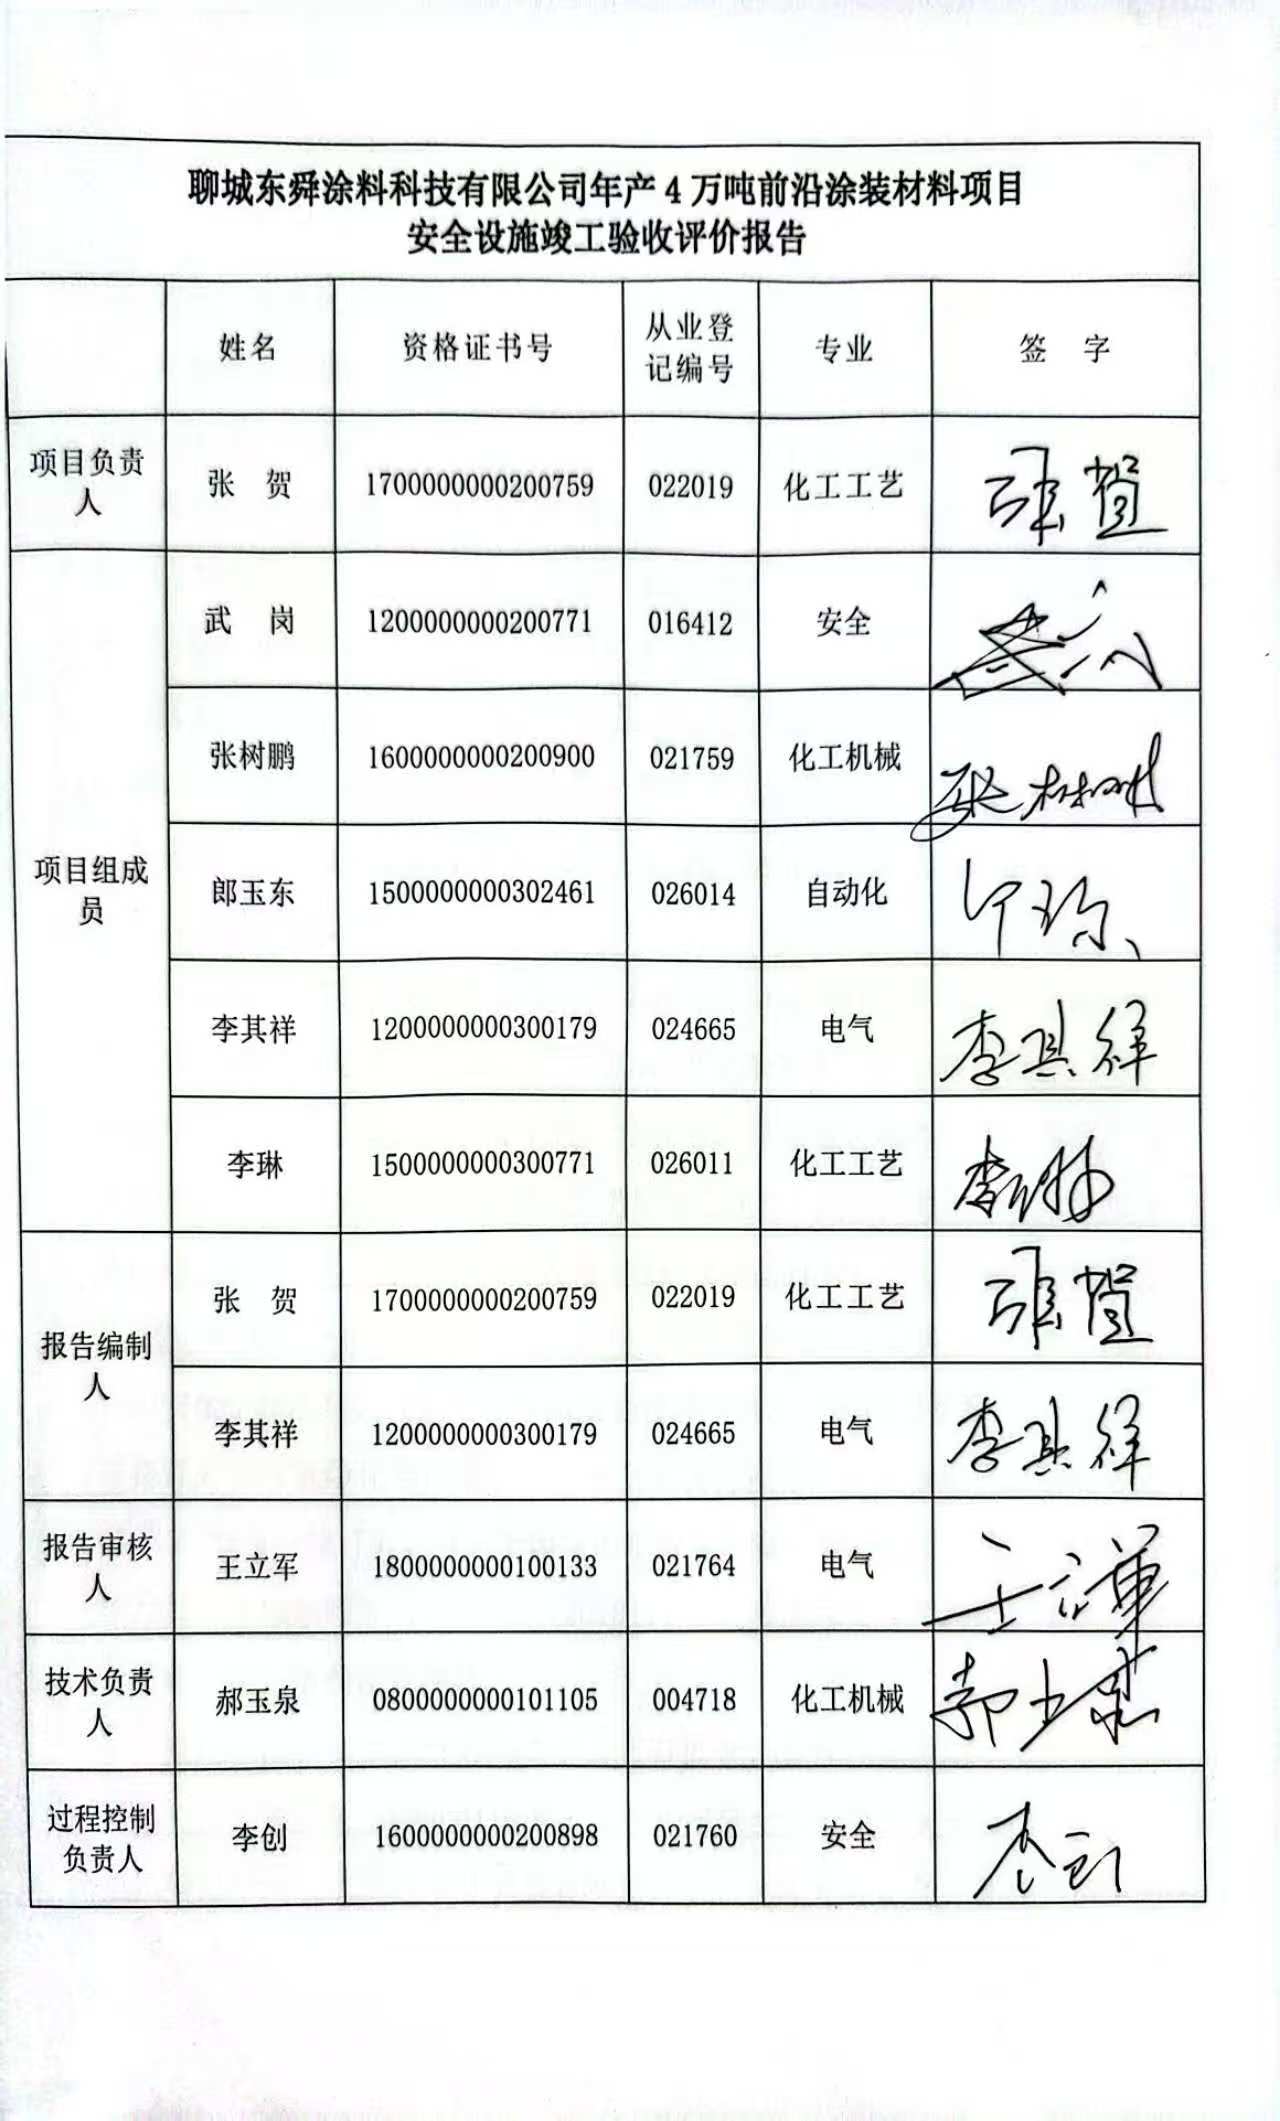 聊城东舜涂料科技有限公司年产4万吨前沿涂装材料项目
安全设施竣工验收评价报告
姓名 资格证书号 从业登记编号 专业 签 字
项目负责人 张 贺 1700000000200759 022019 化工工艺 张贺
项目组成员 武 岗 1200000000200771 016412 安全
张树鹏 1600000000200900 021759 化工机械 张树鹏
郎玉东 1500000000302461 026014 自动化
李其祥 1200000000300179 024665 电气 李其祥
李琳 1500000000300771 026011 化工工艺 李琳
报告编制人 张 贺 1700000000200759 022019 化工工艺 张贺
李其祥 1200000000300179 024665 电气 李其祥
报告审核人 王立军 1800000000100133 021764 电气 王立军
技术负责人 郝玉泉 0800000000101105 004718 化工机械 郝玉泉
过程控制负责人 李创 1600000000200898 021760 安全 李创